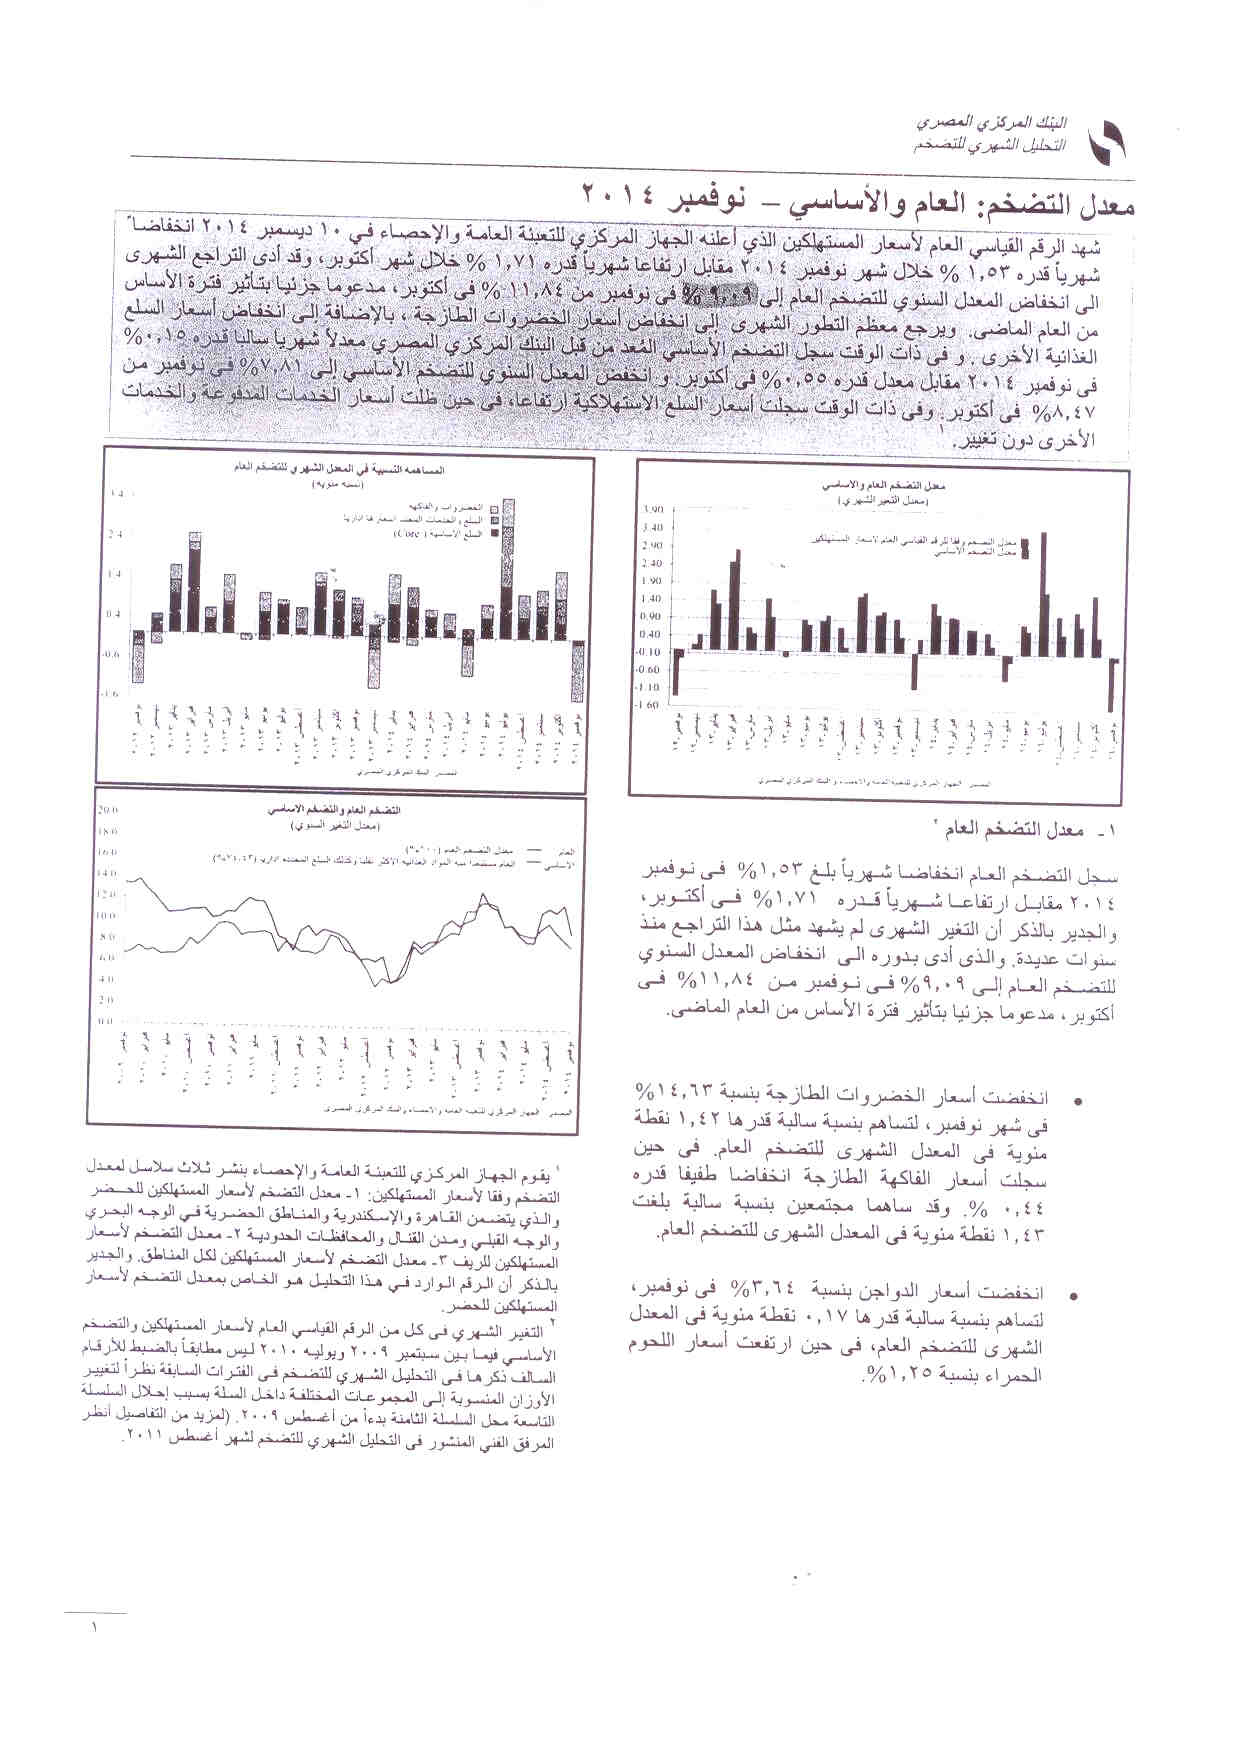 البنك المركزي المصري
التحليل الشهري للتضخم
معدل التضخم: العام والأساسي – نوفمبر ٢٠١٤
شهد الرقم القياسي العام لأسعار المستهلكين الذي أعلنه الجهاز المركزي للتعبئة العامة والإحصاء في ١٠ ديسمبر ٢٠١٤ انخفاضاً
شهرياً قدره ١,٥٣ % خلال شهر نوفمبر ٢٠١٤ مقابل ارتفاعا شهرياً قدره ١,٧١ % خلال شهر أكتوبر، وقد أدى التراجع الشهرى
الى انخفاض المعدل السنوي للتضخم العام إلى ٩,٠٩ % فى نوفمبر من ١١,٨٤ % فى أكتوبر، مدعوما جزئيا بتأثير فترة الأساس
من العام الماضى. ويرجع معظم التطور الشهرى إلى انخفاض أسعار الخضروات الطازجة ، بالإضافة إلى انخفاض أسعار السلع
الغذائية الأخرى . و فى ذات الوقت سجل التضخم الأساسي المُعد من قبل البنك المركزي المصري معدلاً شهريا سالبا قدره ٠,١٥%
فى نوفمبر ٢٠١٤ مقابل معدل قدره ٠,٥٥% فى أكتوبر. و انخفض المعدل السنوي للتضخم الأساسي إلى ٧,٨١% فى نوفمبر من
٨,٤٧% فى أكتوبر. وفى ذات الوقت سجلت أسعار السلع الاستهلاكية ارتفاعا، فى حين ظلت أسعار الخدمات المدفوعة والخدمات
الأخرى دون تغيير. ١
معدل التضخم العام والاساسي
(معدل التغير الشهري)
معدل التضخم وفقا للرقم القياسي العام لاسعار المستهلكين
معدل التضخم الاساسي
3.90
3.40
2.90
2.40
1.90
1.40
0.90
0.40
-0.10
-0.60
-1.10
-1.60
المصدر: الجهاز المركزي للتعبئة العامة والاحصاء و البنك المركزي المصري
المساهمة النسبية في المعدل الشهري للتضخم العام
(نسبة مئوية)
الخضروات والفاكهة
السلع والخدمات المحدد أسعارها اداريا
السلع الاساسية (Core)
3.4
2.4
1.4
0.4
-0.6
-1.6
المصدر: البنك المركزي المصري
التضخم العام والتضخم الاساسي
(معدل التغير السنوي)
العام — معدل التضخم العام (١٠٠%)
20.0
18.0
16.0
14.0
12.0
10.0
8.0
6.0
4.0
2.0
0.0
المصدر: الجهاز المركزي للتعبئة العامة والاحصاء والبنك المركزي المصري
١- معدل التضخم العام ٢
سجل التضخم العام انخفاضا شهرياً بلغ ١,٥٣% فى نوفمبر
٢٠١٤ مقابل ارتفاعا شهرياً قدره ١,٧١% فى أكتوبر،
والجدير بالذكر أن التغير الشهرى لم يشهد مثل هذا التراجع منذ
سنوات عديدة. والذى أدى بدوره الى انخفاض المعدل السنوي
للتضخم العام إلى ٩,٠٩% فى نوفمبر من ١١,٨٤% فى
أكتوبر، مدعوما جزئيا بتأثير فترة الأساس من العام الماضى.
• انخفضت أسعار الخضروات الطازجة بنسبة ١٤,٦٣%
فى شهر نوفمبر، لتساهم بنسبة سالبة قدرها ١,٤٢ نقطة
مئوية فى المعدل الشهرى للتضخم العام. فى حين
سجلت أسعار الفاكهة الطازجة انخفاضا طفيفا قدره
٠,٤٤ %. وقد ساهما مجتمعين بنسبة سالبة بلغت
١,٤٣ نقطة مئوية فى المعدل الشهرى للتضخم العام.
• انخفضت أسعار الدواجن بنسبة ٣,٦٤% فى نوفمبر،
لتساهم بنسبة سالبة قدرها ٠,١٧ نقطة مئوية فى المعدل
الشهرى للتضخم العام، فى حين ارتفعت أسعار اللحوم
الحمراء بنسبة ١,٢٥%.
١ يقوم الجهاز المركزي للتعبئة العامة والإحصاء بنشر ثلاث سلاسل لمعدل
التضخم وفقا لأسعار المستهلكين: ١- معدل التضخم لأسعار المستهلكين للحضر
والذي يتضمن القاهرة والإسكندرية والمناطق الحضرية في الوجه البحري
والوجه القبلي ومدن القنال والمحافظات الحدودية ٢- معدل التضخم لأسعار
المستهلكين للريف ٣- معدل التضخم لأسعار المستهلكين لكل المناطق. والجدير
بالذكر أن الرقم الوارد في هذا التحليل هو الخاص بمعدل التضخم لأسعار
المستهلكين للحضر.
٢ التغير الشهري فى كل من الرقم القياسي العام لأسعار المستهلكين والتضخم
الأساسي فيما بين سبتمبر ٢٠٠٩ ويوليه ٢٠١٠ ليس مطابقاً بالضبط للأرقام
السالف ذكرها فى التحليل الشهري للتضخم فى الفترات السابقة نظراً لتغيير
الأوزان المنسوبة إلى المجموعات المختلفة داخل السلة بسبب إحلال السلسلة
التاسعة محل السلسلة الثامنة بدءاً من أغسطس ٢٠٠٩. (لمزيد من التفاصيل أنظر
المرفق الفني المنشور فى التحليل الشهري للتضخم لشهر أغسطس ٢٠١١.
١